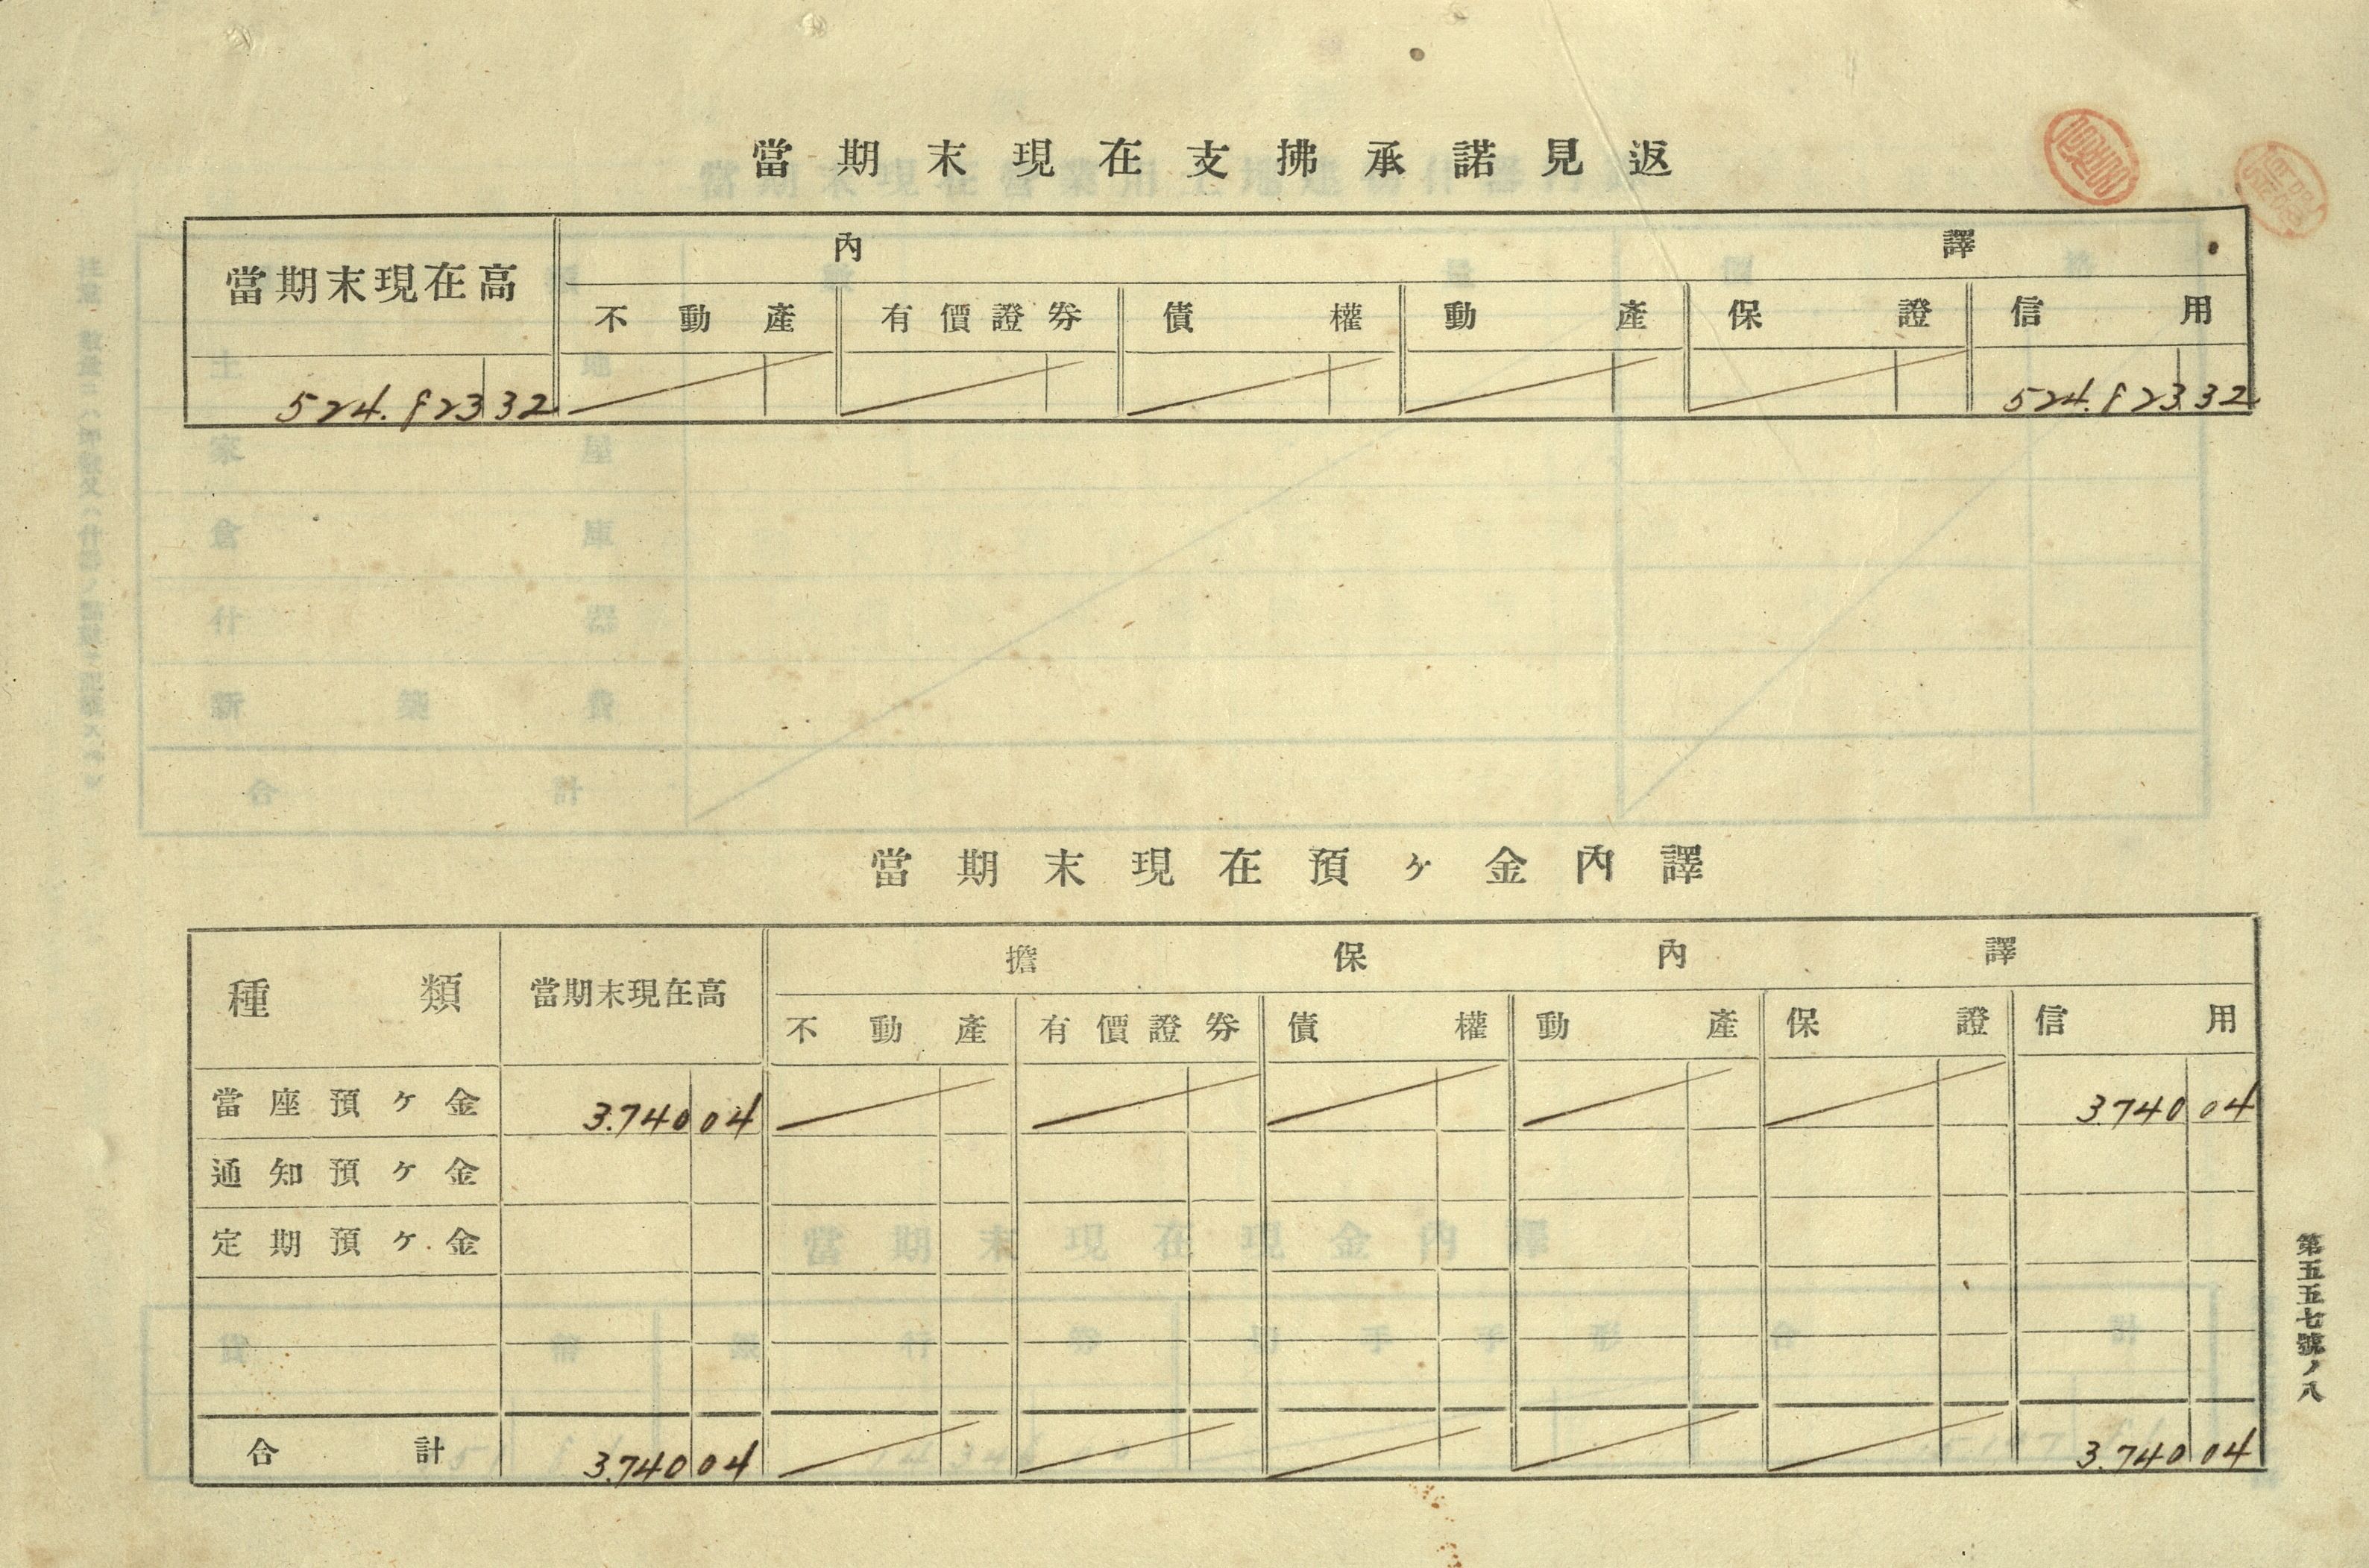 當期末現在支拂承諾見返
當期末現在高 內譯
不動產 有價證券 債權 動產 保證 信用
524.823 32 524.823 32
當期末現在預ヶ金內譯
種類 當期末現在高 擔保內譯
不動產 有價證券 債權 動產 保證 信用
當座預ヶ金 3.740 04 3.740 04
通知預ヶ金
定期預ヶ金
合計 3.740 04 3.740 04
第五五七號ノ八